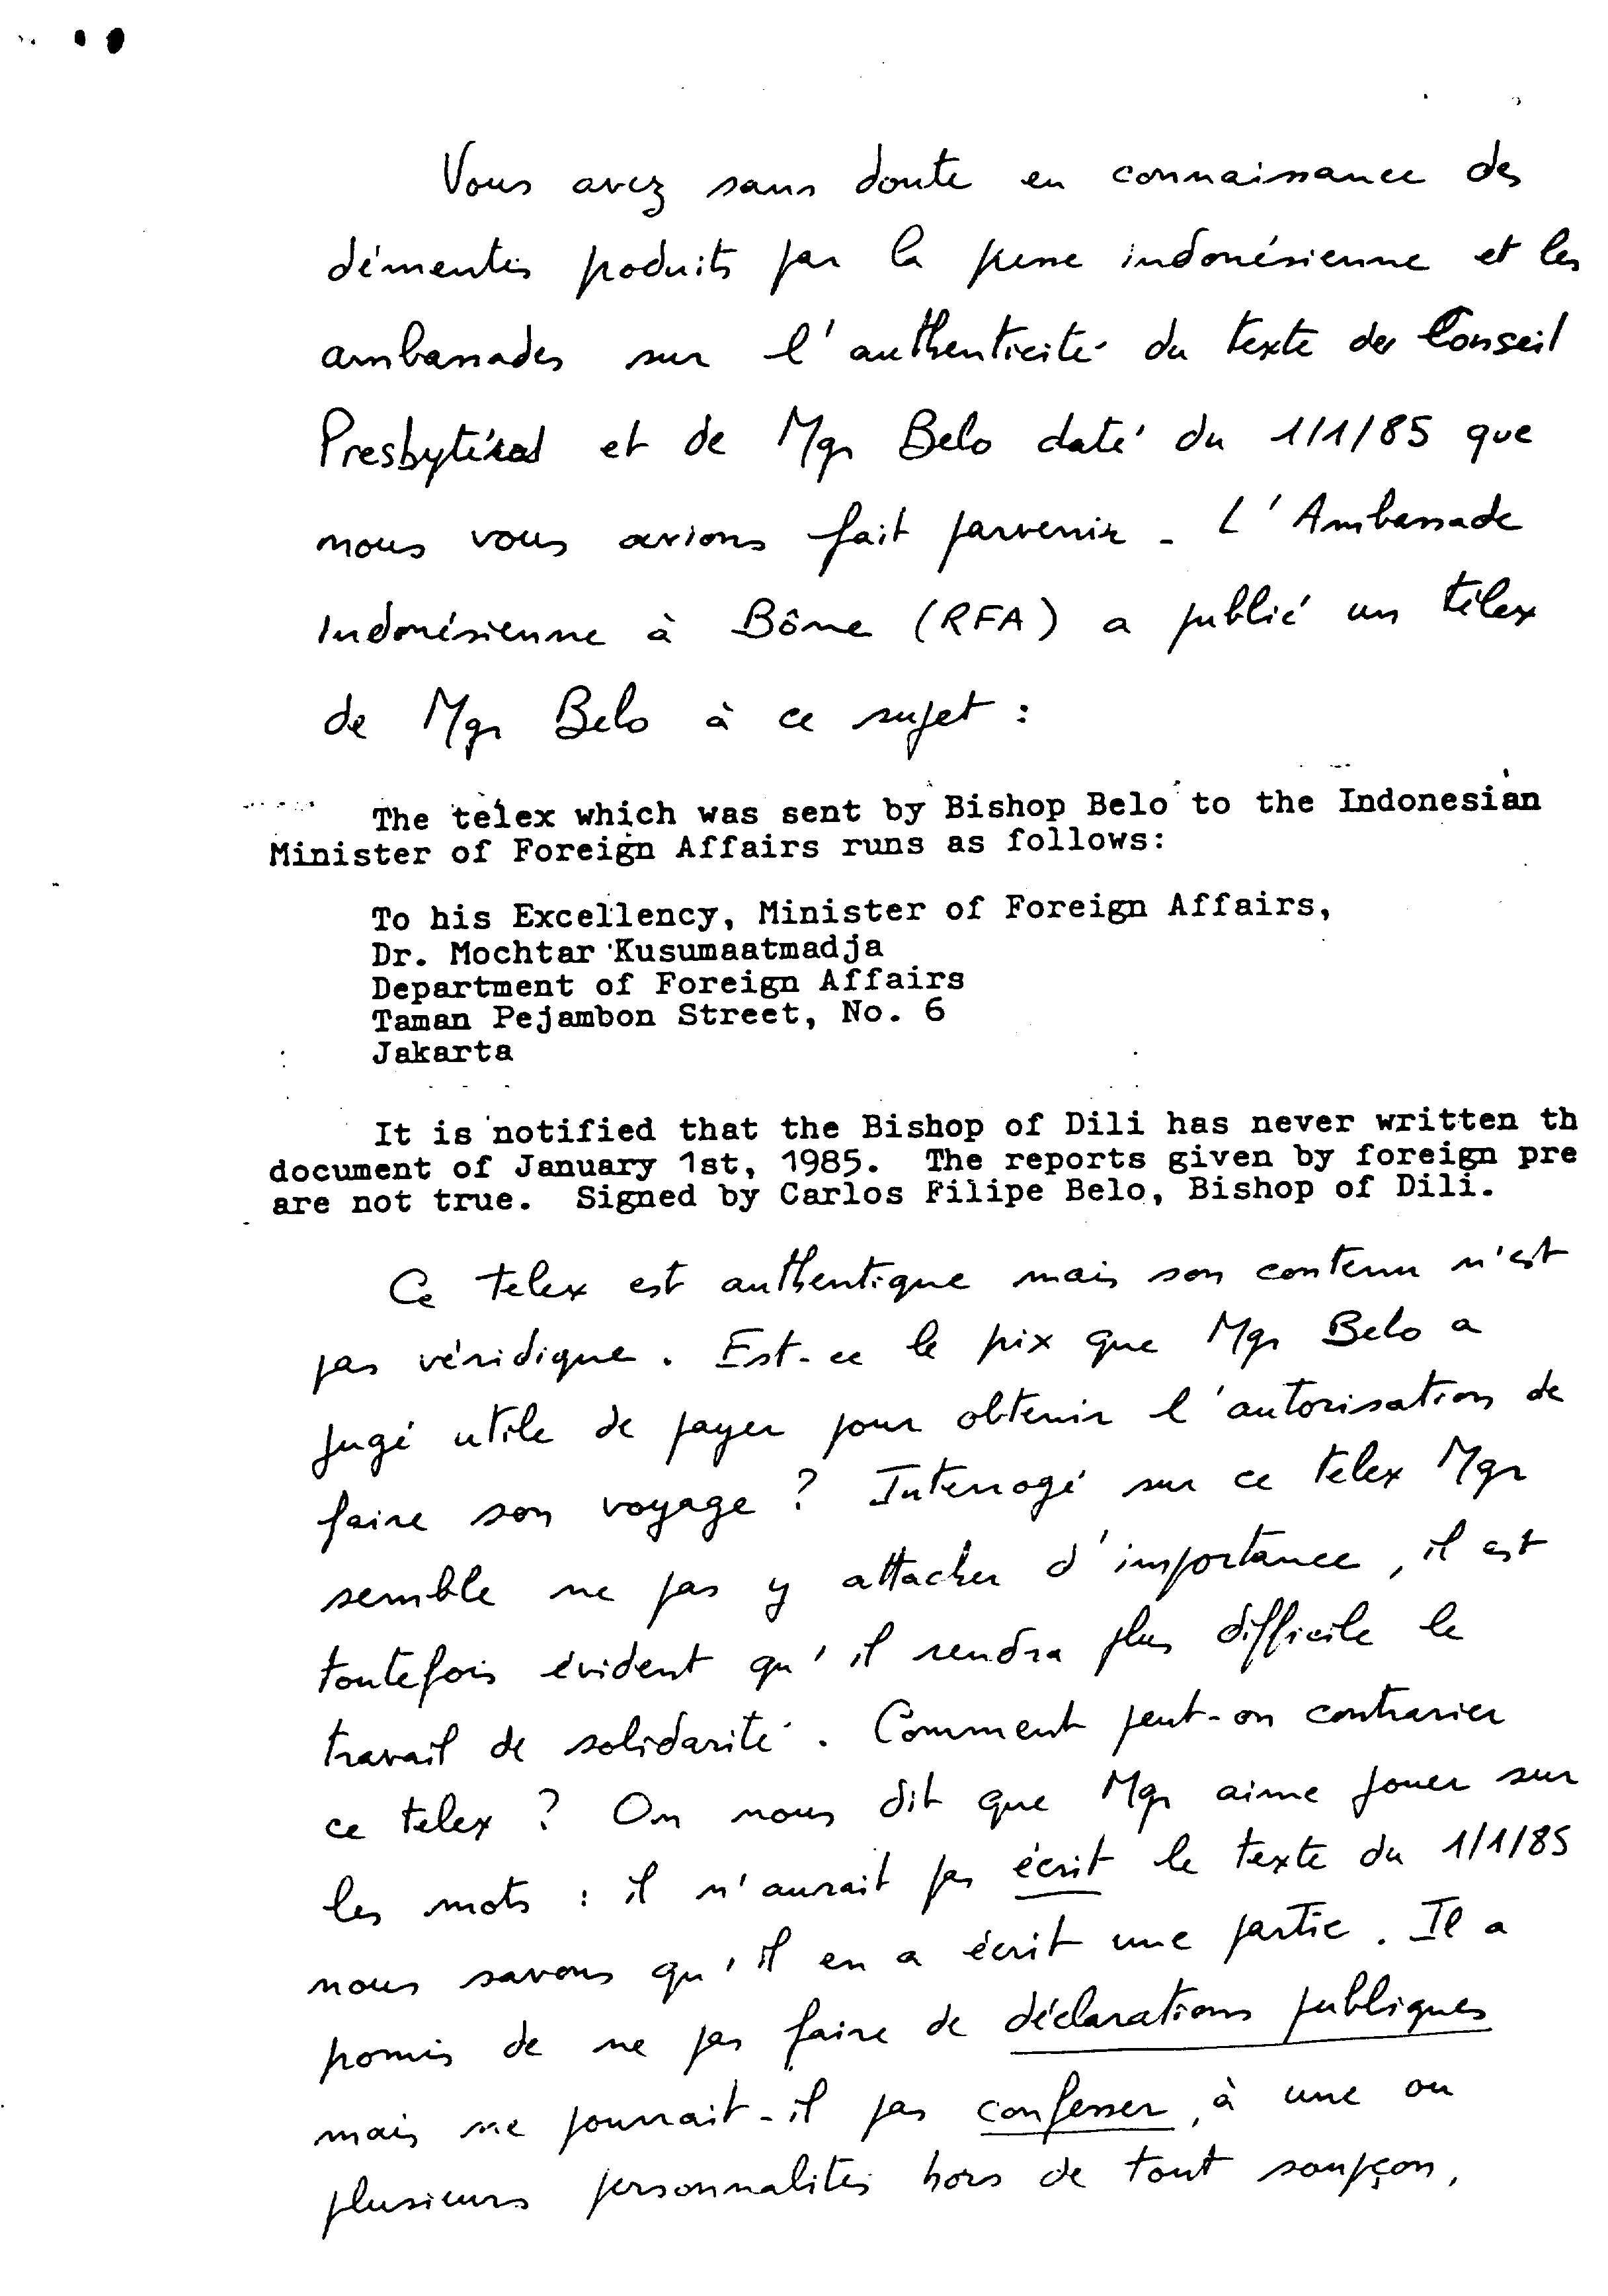 Vous avez sans doute eu connaissance des
démentis produits par la presse indonésienne et les
ambassades sur l'authenticité du texte du Conseil
Presbytéral et de Mgr Belo daté du 1/1/85 que
nous vous avions fait parvenir - L'Ambassade
Indonésienne à Bône (RFA) a publié un télex
de Mgr Belo à ce sujet :
The telex which was sent by Bishop Belo to the Indonesian
Minister of Foreign Affairs runs as follows:
To his Excellency, Minister of Foreign Affairs,
Dr. Mochtar Kusumaatmadja
Department of Foreign Affairs
Taman Pejambon Street, No. 6
Jakarta
It is notified that the Bishop of Dili has never written th
document of January 1st, 1985. The reports given by foreign pre
are not true. Signed by Carlos Filipe Belo, Bishop of Dili.
Ce telex est authentique mais son contenu n'est
pas véridique. Est-ce le prix que Mgr Belo a
jugé utile de payer pour obtenir l'autorisation de
faire son voyage ? Interrogé sur ce telex Mgr
semble ne pas y attacher d'importance, il est
toutefois évident qu'il rendra plus difficile le
travail de solidarité. Comment peut-on contrarier
ce telex ? On nous dit que Mgr aime jouer sur
les mots : il n'aurait pas écrit le texte du 1/1/85
nous savons qu'il en a écrit une partie. Il a
promis de ne pas faire de déclarations publiques
mais ne pourrait-il pas confesser, à une ou
plusieurs personnalités hors de tout soupçon,